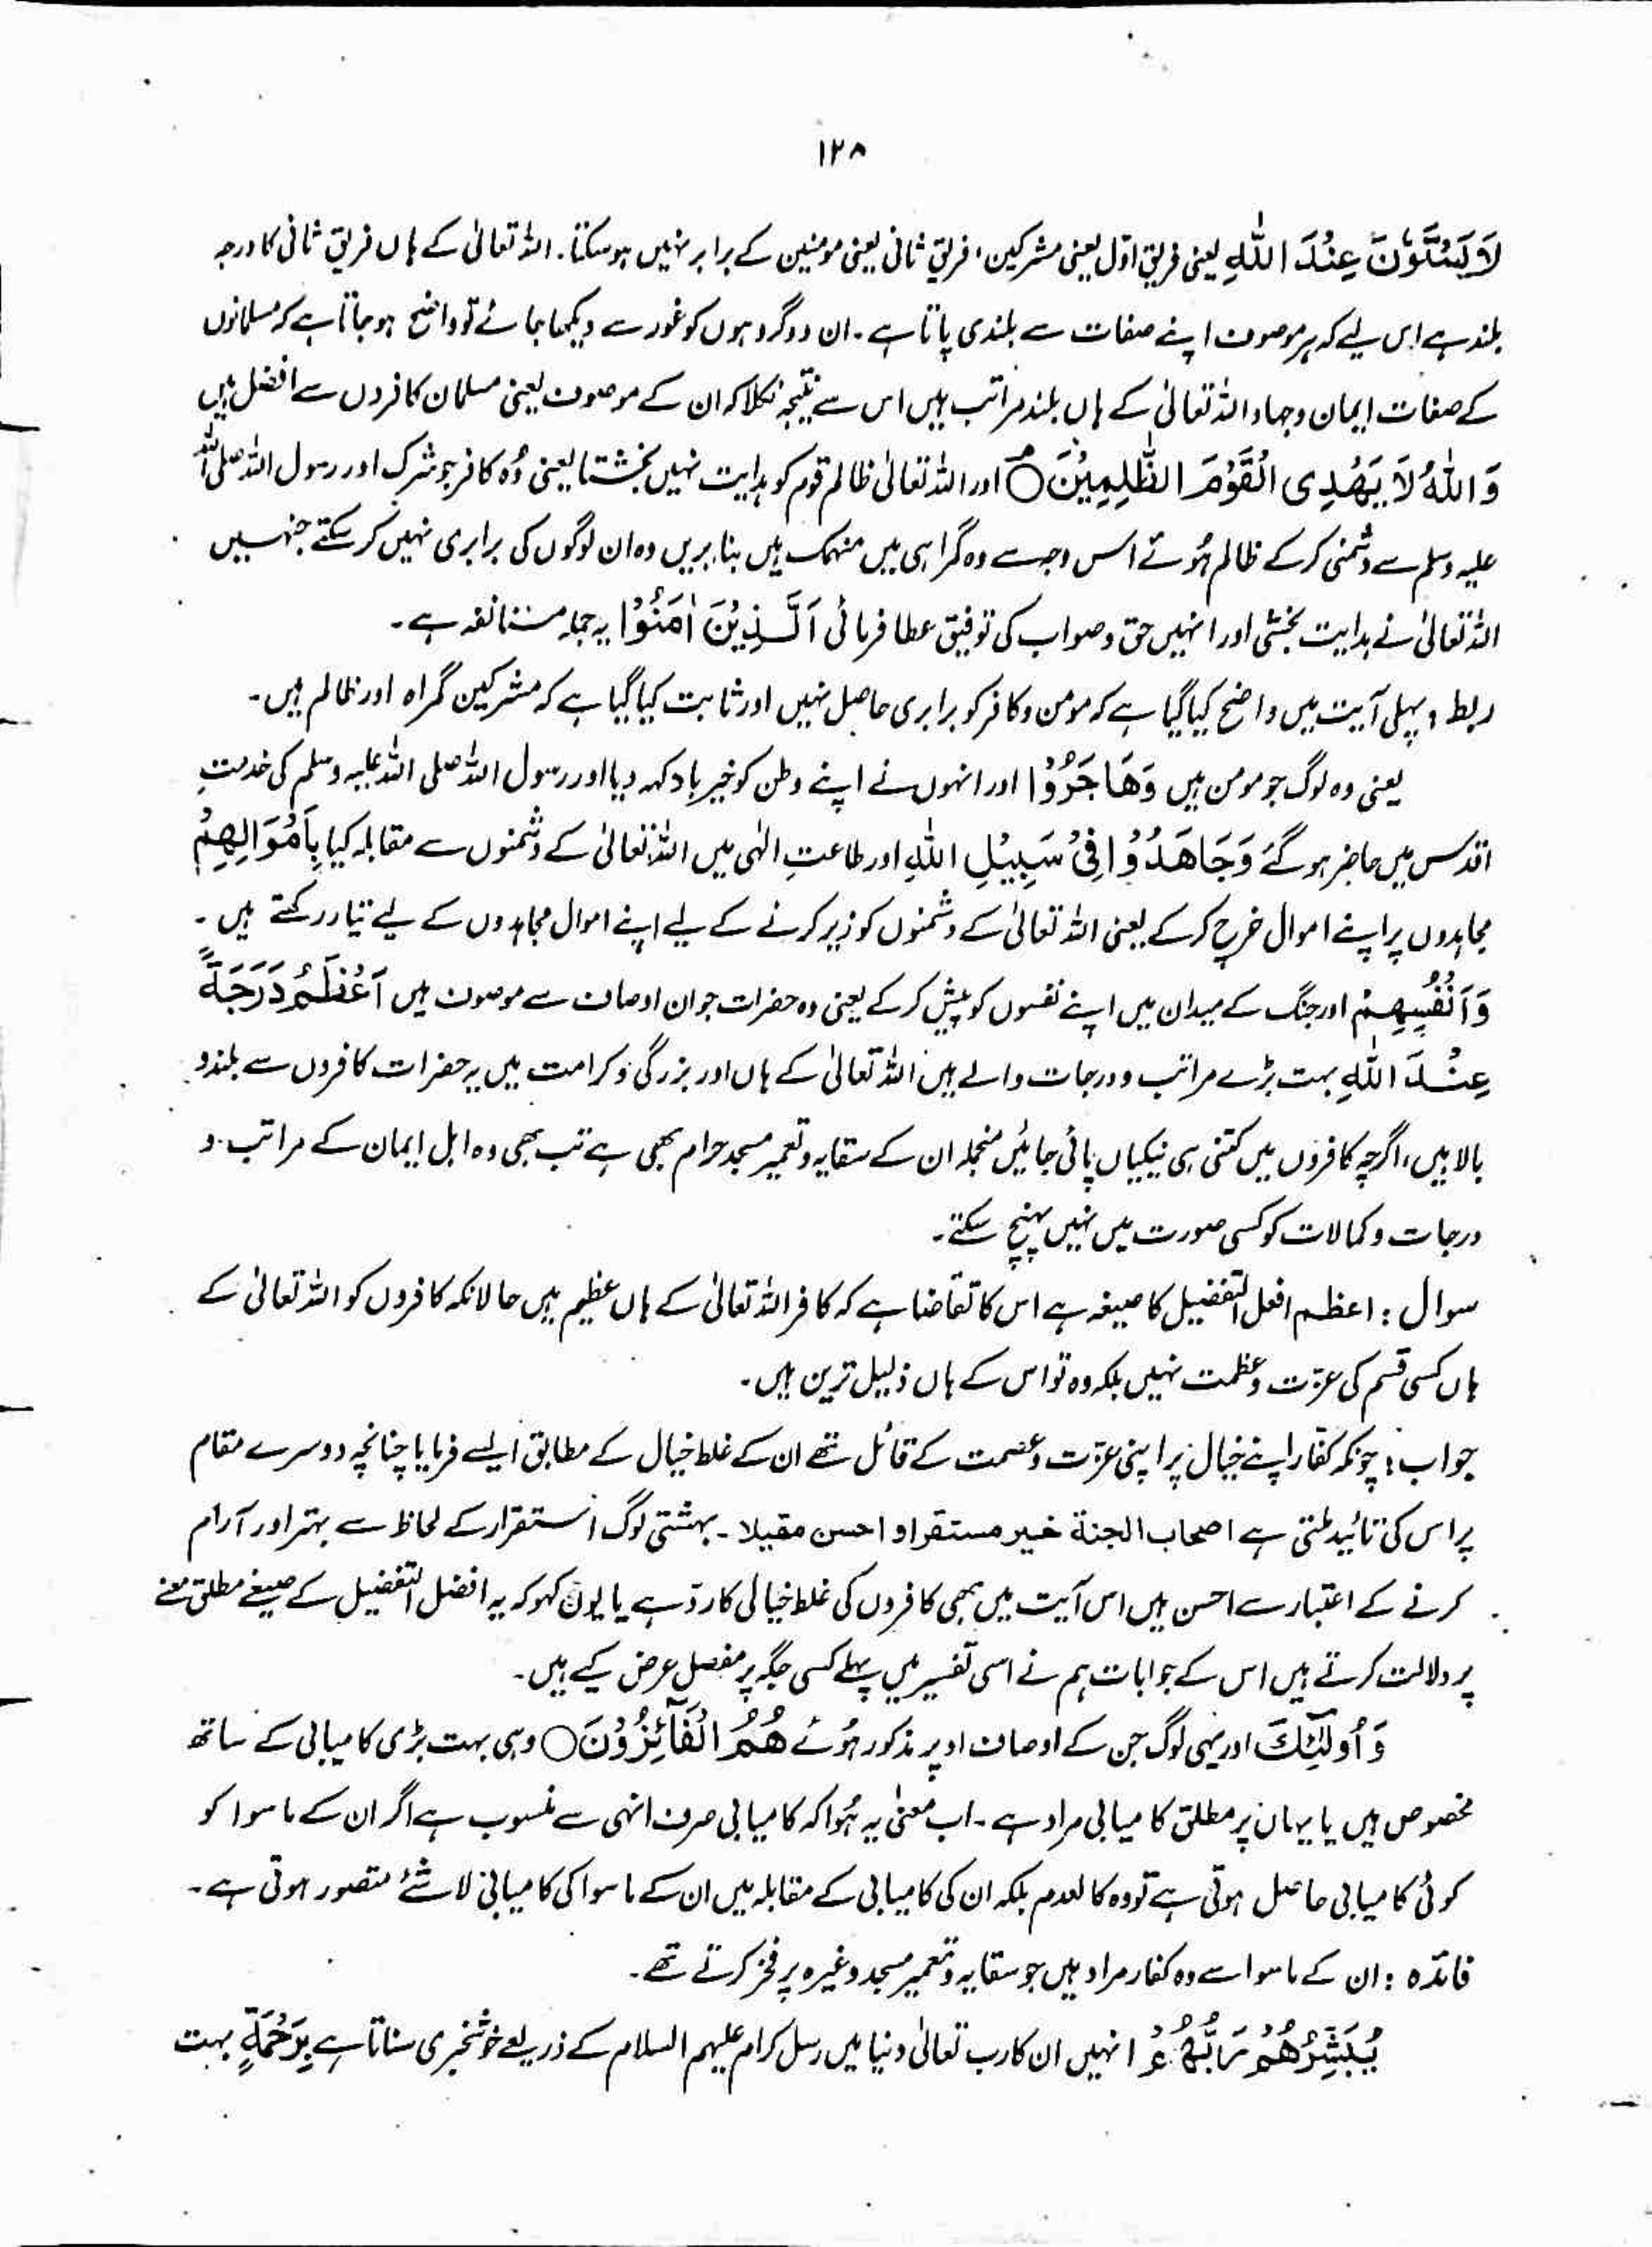 ۱۲۸
لَا یَسْتَوٗنَ عِنْدَ اللّٰهِ یعنی فریق اوّل یعنی مشرکین، فریق ثانی یعنی مومنین کے برابر نہیں ہو سکتا۔ اللہ تعالیٰ کے ہاں فریق ثانی کا درجہ
بلند ہے اس لیے کہ ہر موصوف اپنے صفات سے بلندی پاتا ہے۔ ان دو گروہوں کو غور سے دیکھا جائے تو واضح ہو جاتا ہے کہ مسلمانوں
کے صفات ایمان و جہاد اللہ تعالیٰ کے ہاں بلند مراتب ہیں اس سے نتیجہ نکلا کہ ان کے موصوف یعنی مسلمان کافروں سے افضل ہیں
وَاللّٰهُ لَا یَهْدِی الْقَوْمَ الظّٰلِمِیْنَ○ اور اللہ تعالیٰ ظالم قوم کو ہدایت نہیں بخشتا یعنی وُہ کافر جو شرک اور رسول اللہ صلی اللہ
علیہ وسلم سے دشمنی کر کے ظالم ہُوئے اس وجہ سے وہ گمراہی میں منہمک ہیں بنا بریں وہ ان لوگوں کی برابری نہیں کر سکتے جنہیں
اللہ تعالیٰ نے ہدایت بخشی اور انہیں حق و صواب کی توفیق عطا فرمائی اَلَّذِیْنَ اٰمَنُوْا یہ جملہ مستانفہ ہے۔
ربط : پہلی آیت میں واضح کیا گیا ہے کہ مومن و کافر کو برابری حاصل نہیں اور ثابت کیا گیا ہے کہ مشرکین گمراہ اور ظالم ہیں۔
یعنی وہ لوگ جو مومن ہیں وَهَاجَرُوْا اور انہوں نے اپنے وطن کو خیر باد کہہ دیا اور رسول اللہ صلی اللہ علیہ وسلم کی خدمتِ
اقدس میں حاضر ہو گئے وَجَاهَدُوْا فِیْ سَبِیْلِ اللّٰهِ اور طاعتِ الٰہی میں اللہ تعالیٰ کے دشمنوں سے مقابلہ کیا بِاَمْوَالِهِمْ
مجاہدوں پر اپنے اموال خرچ کر کے یعنی اللہ تعالیٰ کے دشمنوں کو زیر کرنے کے لیے اپنے اموال مجاہدوں کے لیے تیار رکھتے ہیں۔
وَاَنْفُسِهِمْ اور جنگ کے میدان میں اپنے نفسوں کو پیش کر کے یعنی وہ حضرات جو ان اوصاف سے موصوف ہیں اَعْظَمُ دَرَجَةً
عِنْدَ اللّٰهِ بہت بڑے مراتب و درجات والے ہیں اللہ تعالیٰ کے ہاں اور بزرگی و کرامت میں یہ حضرات کافروں سے بلند و
بالا ہیں، اگرچہ کافروں میں کتنی ہی نیکیاں پائی جائیں منجملہ ان کے سقایہ و تعمیر مسجد حرام بھی ہے تب بھی وہ اہل ایمان کے مراتب و
درجات و کمالات کو کسی صورت میں نہیں پہنچ سکتے۔
سوال : اعظم افعل التفضیل کا صیغہ ہے اس کا تقاضا ہے کہ کافر اللہ تعالیٰ کے ہاں عظیم ہیں حالانکہ کافروں کو اللہ تعالیٰ کے
ہاں کسی قسم کی عزّت و عظمت نہیں بلکہ وہ تو اس کے ہاں ذلیل ترین ہیں۔
جواب : چونکہ کفار اپنے خیال پر اپنی عزّت و عصمت کے قائل تھے ان کے غلط خیال کے مطابق ایسے فرمایا چنانچہ دوسرے مقام
پر اس کی تائید ملتی ہے اصحاب الجنة خیر مستقرا و احسن مقیلا۔ بہشتی لوگ استقرار کے لحاظ سے بہتر اور آرام
کرنے کے اعتبار سے احسن ہیں اس آیت میں بھی کافروں کی غلط خیالی کا ردّ ہے یا یوں کہو کہ یہ افضل التفضیل کے صیغے مطلق معنے
پر دلالت کرتے ہیں اس کے جوابات ہم نے اسی تفسیر میں پہلے کسی جگہ پر مفصل عرض کیے ہیں۔
وَ اُولٰٓئِكَ اور یہی لوگ جن کے اوصاف اوپر مذکور ہُوئے هُمُ الْفَآئِزُوْنَ○ وہی بہت بڑی کامیابی کے ساتھ
مخصوص ہیں یا یہاں پر مطلق کامیابی مراد ہے۔ اب معنٰی یہ ہُوا کہ کامیابی صرف انہی سے منسوب ہے اگر ان کے ماسوا کو
کوئی کامیابی حاصل ہوتی ہے تو وہ کالعدم بلکہ ان کی کامیابی کے مقابلہ میں ان کے ماسوا کی کامیابی لاشئے متصور ہوتی ہے۔
فائدہ : ان کے ماسوا سے وہ کفار مراد ہیں جو سقایہ و تعمیر مسجد وغیرہ پر فخر کرتے تھے۔
یُبَشِّرُهُمْ رَبُّهُمْ انہیں ان کا رب تعالیٰ دنیا میں رسل کرام علیہم السلام کے ذریعے خوشخبری سناتا ہے بِرَحْمَةٍ بہت